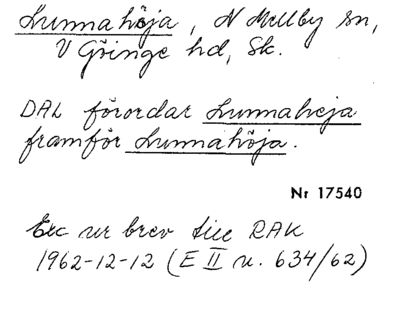 Lunnahöja, N Mellby sn,
V Göinge hd, Sk.
DAL förordar Lunnaheja
framför Lunnahöja.
Nr 17540
Exc ur brev till RAK
1962-12-12 (E II n. 634/62)